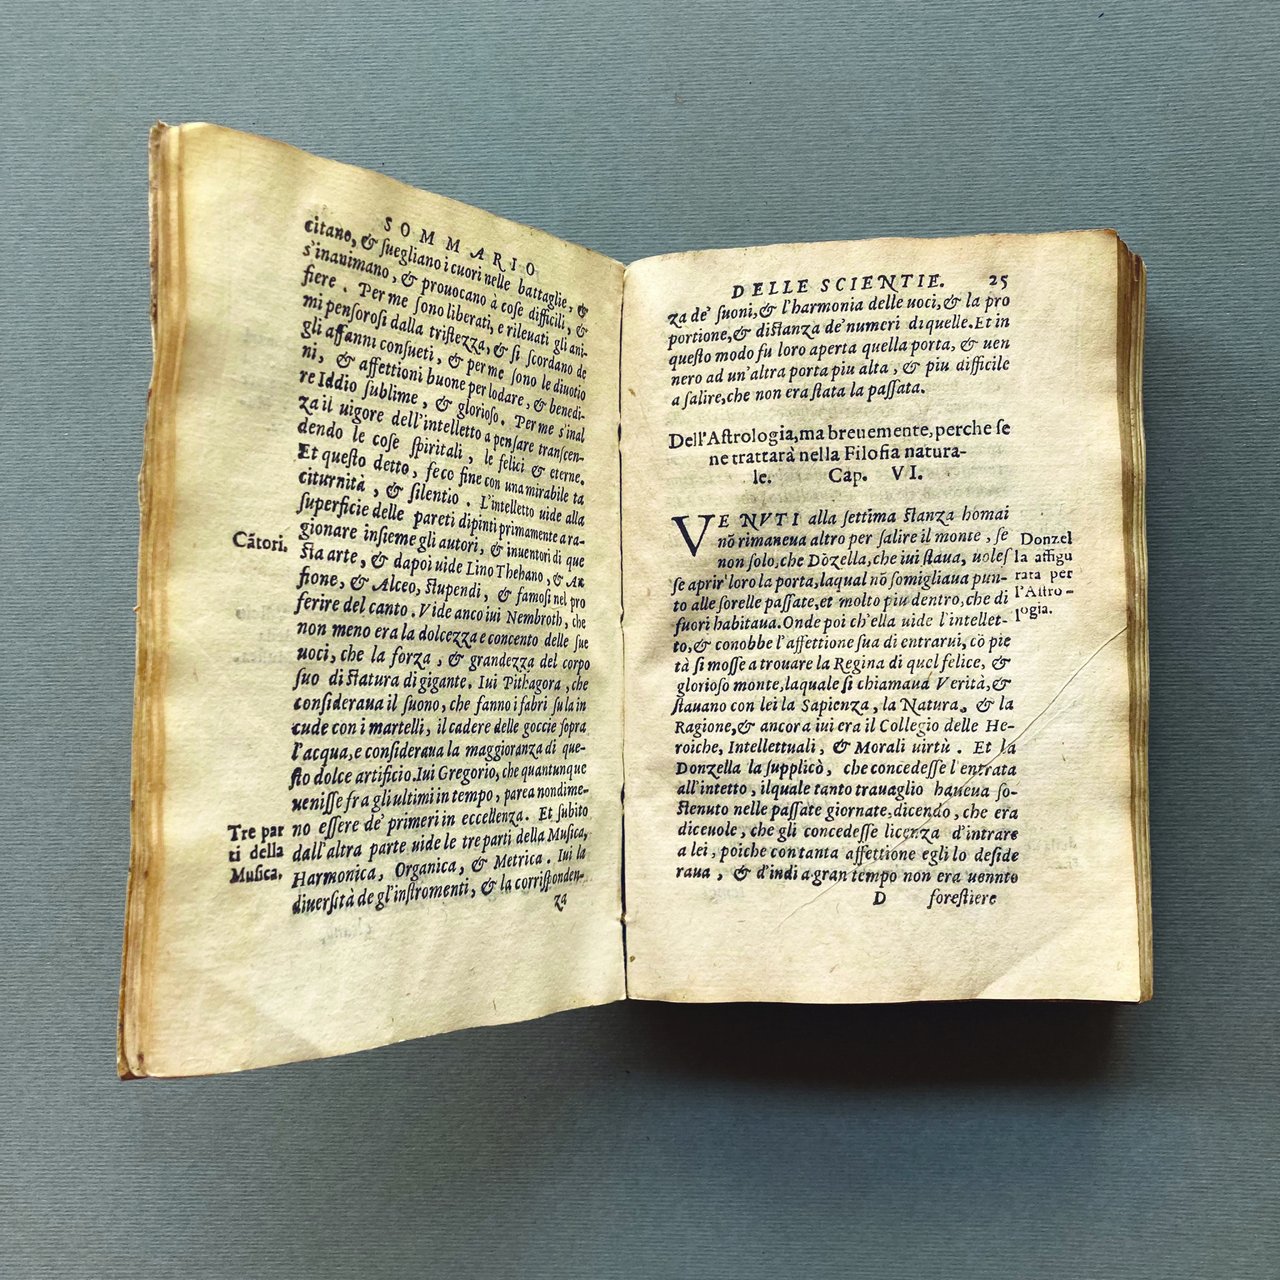 SOMMARIO
citano, & ſuegliano i cuori nelle battaglie, &
s'inauimano, & prouocano à coſe difficili, &
fiere. Per me ſono liberati, e rileuati gli ani-
mi penſoroſi dalla triſtezza, & ſi ſcordano de
gli affanni conſueti, & per me ſono le diuotio
ni, & affettioni buone per lodare, & benedi-
re Iddio ſublime, & glorioſo. Per me s'inal
za il uigore dell'intelletto a penſare tranſcen-
dendo le coſe ſpiritali, le felici & eterne.
Et queſto detto, fece fine con una mirabile ta
citurnità, & ſilentio. L'intelletto uide alla
ſuperficie delle pareti dipinti primamente a ra-
gionare inſieme gli autori, & inuentori di que
Cātori. ſta arte, & dapoi uide Lino Thebano, & An
fione, & Alceo, ſtupendi, & famoſi nel pro
ferire del canto. Vide anco iui Nembroth, che
non meno era la dolcezza e concento delle ſue
uoci, che la forza, & grandezza del corpo
ſuo di ſtatura di gigante. Iui Pithagora, che
conſideraua il ſuono, che fanno i fabri ſu la in
cude con i martelli, il cadere delle goccie ſopra
l'acqua, e conſideraua la maggioranza di que-
ſto dolce artificio. Iui Gregorio, che quantunque
ueniſſe fra gli ultimi in tempo, parea nondime-
Tre par no eſſere de' primeri in eccellenza. Et ſubito
ti della dall'altra parte uide le tre parti della Muſica,
Muſica. Harmonica, Organica, & Metrica. Iui la
diuerſità de gl'inſtromenti, & la corriſponden-
za
DELLE SCIENTIE. 25
za de' ſuoni, & l'harmonia delle uoci, & la pro
portione, & diſtanza de' numeri di quelle. Et in
queſto modo fu loro aperta quella porta, & uen
nero ad un'altra porta piu alta, & piu difficile
a ſalire, che non era ſtata la paſſata.
Dell'Aſtrologia, ma breuemente, perche ſe
ne trattarà nella Filoſia natura-
le. Cap. VI.
VENVTI alla ſettima ſtanza homai
nō rimaneua altro per ſalire il monte, ſe Donzel
non ſolo, che Dōzella, che iui ſtaua, uoleſ la affigu
ſe aprir' loro la porta, laqual nō ſomigliaua pun- rata per
to alle ſorelle paſſate, et molto piu dentro, che di l'Aſtro-
fuori habitaua. Onde poi ch'ella uide l'intellet- logia.
to, & conobbe l'affettione ſua di entrarui, cō pie
tà ſi moſſe a trouare la Regina di quel felice, &
glorioſo monte, laquale ſi chiamaua Verità, &
ſtauano con lei la Sapienza, la Natura, & la
Ragione, & ancora iui era il Collegio delle He-
roiche, Intellettuali, & Morali uirtù. Et la
Donzella la ſupplicò, che concedeſſe l'entrata
all'intetto, ilquale tanto trauaglio haueua ſo-
ſtenuto nelle paſſate giornate, dicendo, che era
diceuole, che gli concedeſſe licenza d'intrare
a lei, poiche con tanta affettione egli lo deſide
raua, & d'indi a gran tempo non era uenuto
D foreſtiere